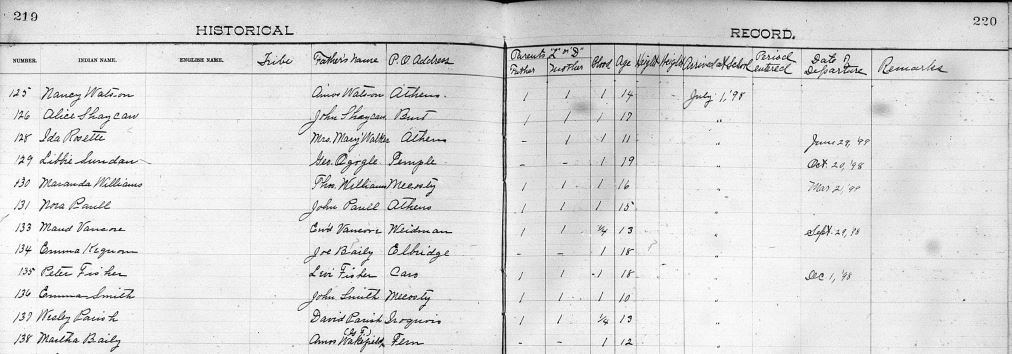 219
220
HISTORICAL
RECORD.
NUMBER. INDIAN NAME. ENGLISH NAME. Tribe Father's Name P.O. Address Parents "L" or "D" Father Mother Blood Age Height Weight Arrived at School Period entered Date of Departure Remarks
125 Nancy Watson Amos Watson Athens. 1 1 1 14 July 1, '98
126 Alice John Burt 1 1 1 17 "
128 Ida Rosette Mrs. Mary Walker Athens - 1 1 11 " June 29, '99
129 Libbie Sundan Geo. Temple - - 1 19 " Oct. 20, '98
130 Maranda Williams Thos. Williams Mecosty 1 1 1 16 " Mar 2, '99
131 Nora Paull John Paull Athens 1 1 1 15 "
133 Maud Vancore Weidman 1 1 1/4 13 " Sept. 29, '98
134 Emma Joe Baily Elbridge - - 1 18 "
135 Peter Fisher Levi Fisher Caro 1 1 1 18 " Dec 1, '98
136 Emma Smith John Smith Mecosty 1 1 1 10 "
137 Wesley Parish David Parish Iroquois 1 1 1/4 13 "
138 Martha Baily Amos Wakefield (G.F.) Fern - - 1 12 "